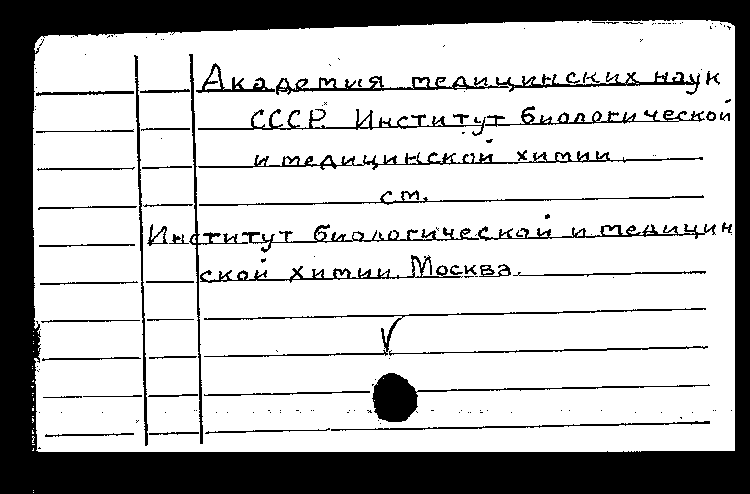 Академия медицинских наук
СССР. Институт биологической
и медицинской химии.
см.
Институт биологической и медицин
ской химии. Москва.